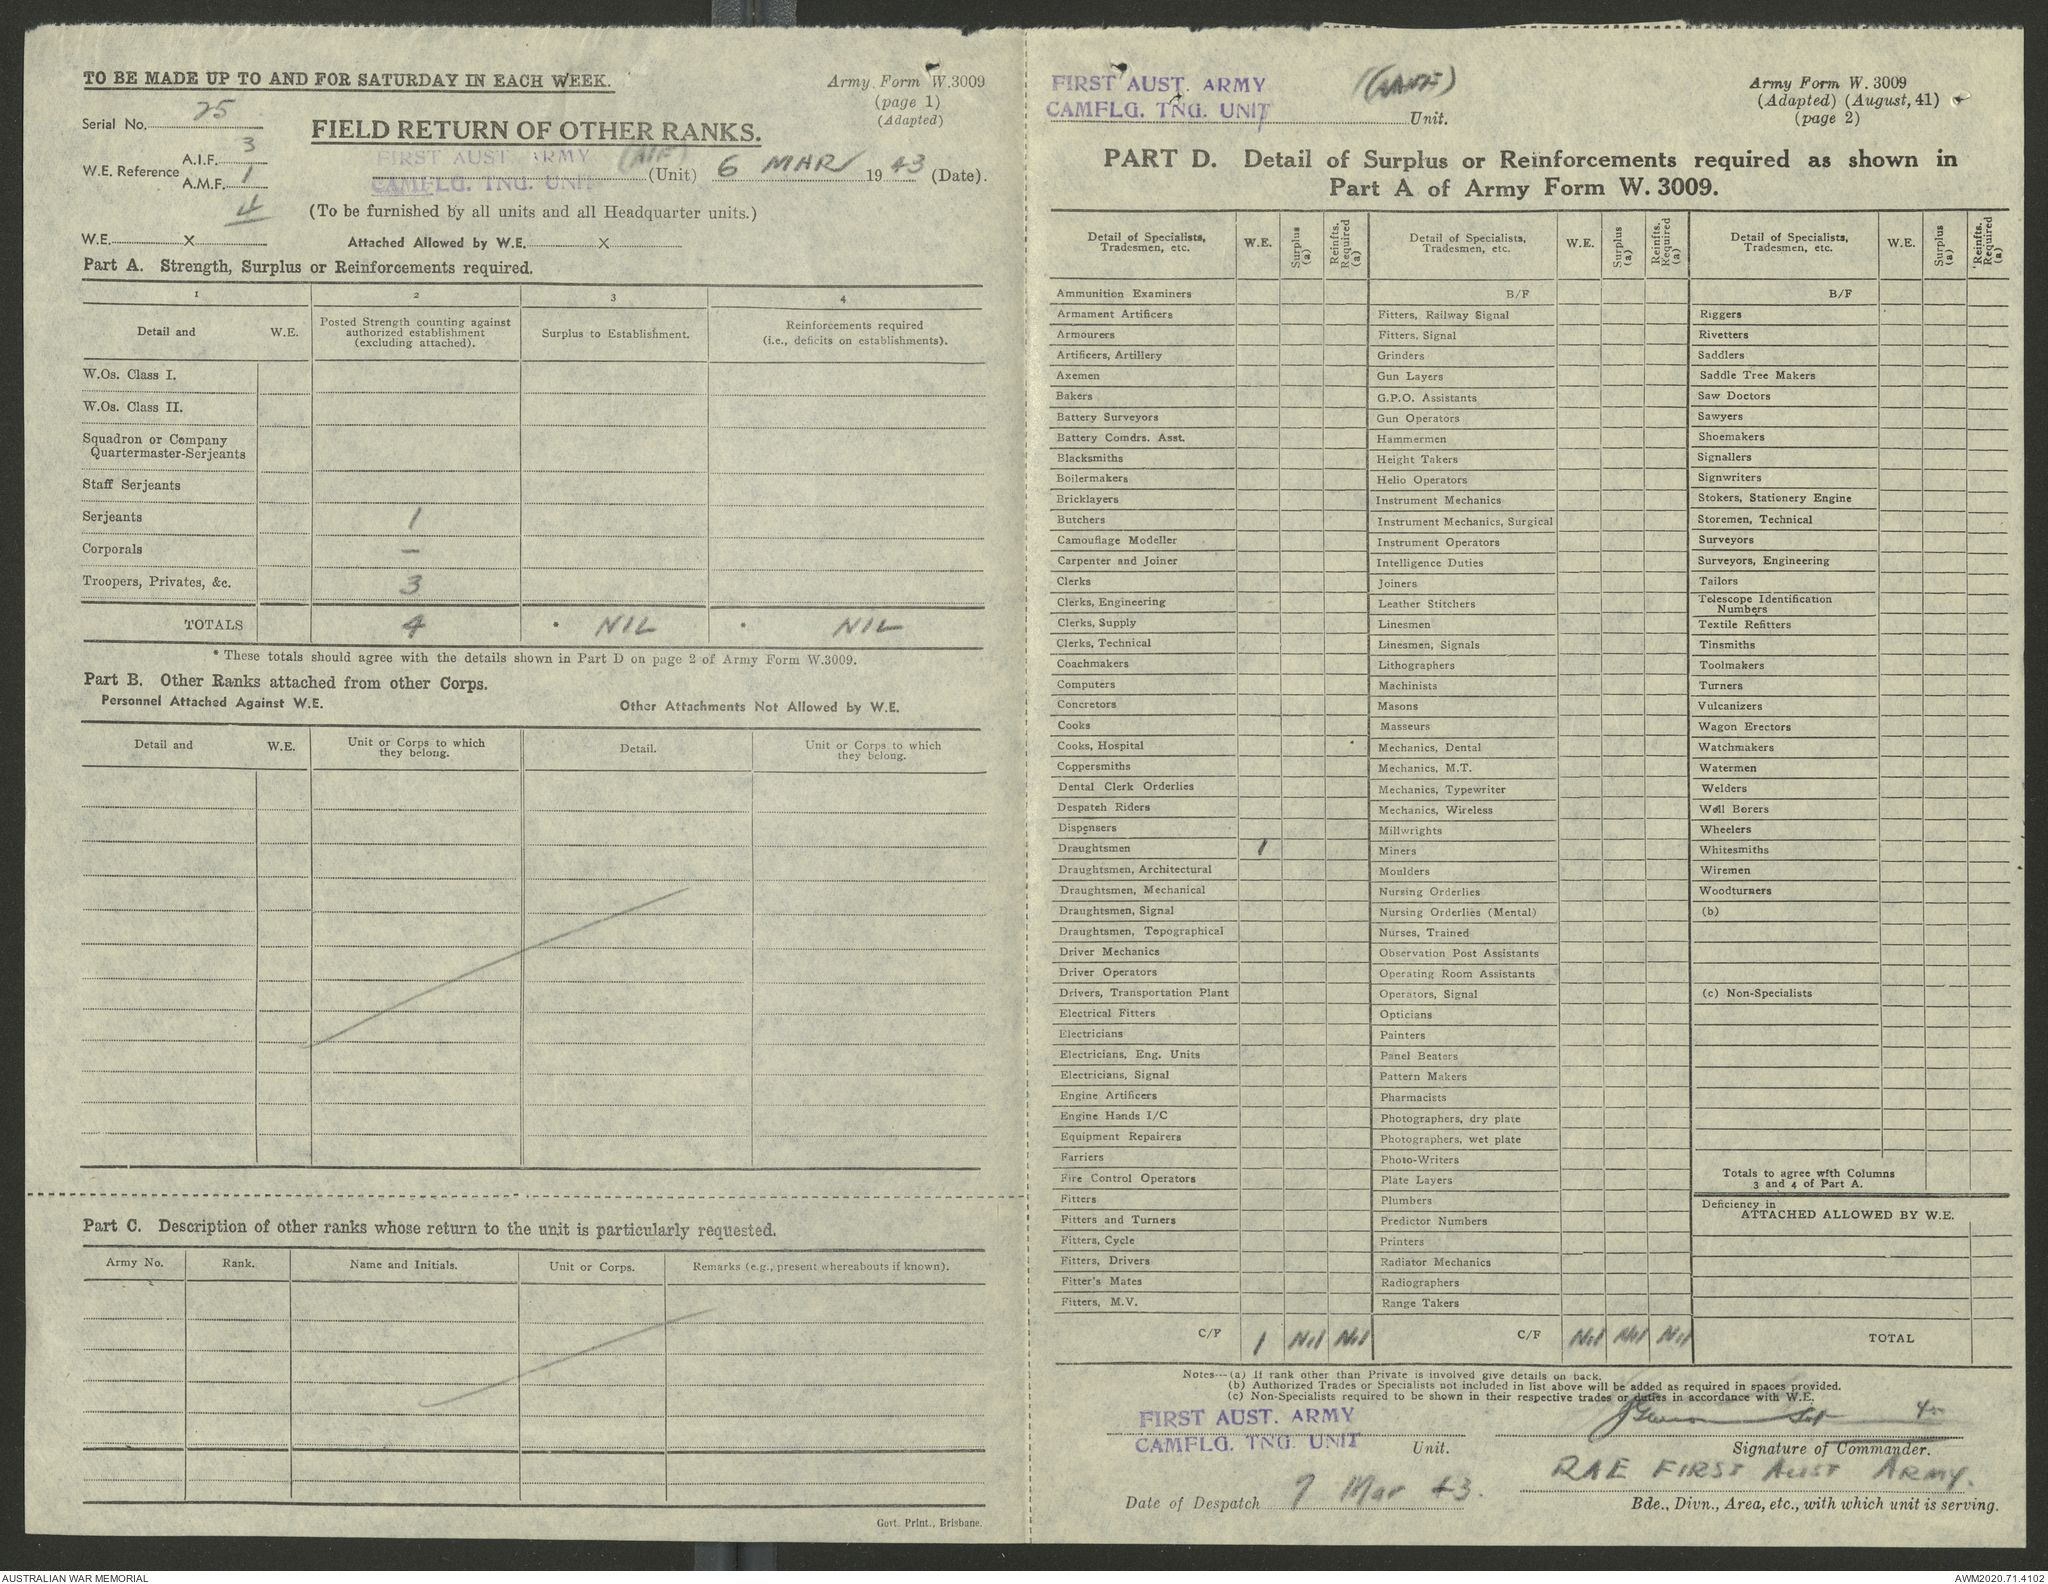 TO BE MADE UP TO AND FOR SATURDAY IN EACH WEEK.
Army Form W.3009
(page 1)
(Adapted)
Serial No. 25
FIELD RETURN OF OTHER RANKS.
W.E. Reference A.I.F. 3
A.M.F. 1
4
FIRST AUST. ARMY (AIF)
CAMFLG. TNG. UNIT (Unit) 6 MAR 1943 (Date).
(To be furnished by all units and all Headquarter units.)
W.E. X Attached Allowed by W.E. X
Part A. Strength, Surplus or Reinforcements required.
1 2 3 4
Detail and W.E. Posted Strength counting against authorized establishment (excluding attached). Surplus to Establishment. Reinforcements required (i.e., deficits on establishments).
W.Os. Class I.
W.Os. Class II.
Squadron or Company
Quartermaster-Serjeants
Staff Serjeants
Serjeants 1
Corporals —
Troopers, Privates, &c. 3
TOTALS 4 * NIL * NIL
* These totals should agree with the details shown in Part D on page 2 of Army Form W.3009.
Part B. Other Ranks attached from other Corps.
Personnel Attached Against W.E. Other Attachments Not Allowed by W.E.
Detail and W.E. Unit or Corps to which they belong. Detail. Unit or Corps to which they belong.
Part C. Description of other ranks whose return to the unit is particularly requested.
Army No. Rank. Name and Initials. Unit or Corps. Remarks (e.g., present whereabouts if known).
Govt. Print., Brisbane.
FIRST AUST. ARMY
CAMFLG. TNG. UNIT Unit.
Army Form W. 3009
(Adapted) (August, 41)
(page 2)
PART D. Detail of Surplus or Reinforcements required as shown in
Part A of Army Form W. 3009.
Detail of Specialists, Tradesmen, etc. W.E. Surplus (a) Reinfts. Required (a)
Ammunition Examiners
Armament Artificers
Armourers
Artificers, Artillery
Axemen
Bakers
Battery Surveyors
Battery Comdrs. Asst.
Blacksmiths
Boilermakers
Bricklayers
Butchers
Camouflage Modeller
Carpenter and Joiner
Clerks
Clerks, Engineering
Clerks, Supply
Clerks, Technical
Coachmakers
Computers
Concretors
Cooks
Cooks, Hospital
Coppersmiths
Dental Clerk Orderlies
Despatch Riders
Dispensers
Draughtsmen 1
Draughtsmen, Architectural
Draughtsmen, Mechanical
Draughtsmen, Signal
Draughtsmen, Topographical
Driver Mechanics
Driver Operators
Drivers, Transportation Plant
Electrical Fitters
Electricians
Electricians, Eng. Units
Electricians, Signal
Engine Artificers
Engine Hands I/C
Equipment Repairers
Farriers
Fire Control Operators
Fitters
Fitters and Turners
Fitters, Cycle
Fitters, Drivers
Fitter's Mates
Fitters, M.V.
C/F 1 Nil Nil
Detail of Specialists, Tradesmen, etc. W.E. Surplus (a) Reinfts. Required (a)
B/F
Fitters, Railway Signal
Fitters, Signal
Grinders
Gun Layers
G.P.O. Assistants
Gun Operators
Hammermen
Height Takers
Helio Operators
Instrument Mechanics
Instrument Mechanics, Surgical
Instrument Operators
Intelligence Duties
Joiners
Leather Stitchers
Linesmen
Linesmen, Signals
Lithographers
Machinists
Masons
Masseurs
Mechanics, Dental
Mechanics, M.T.
Mechanics, Typewriter
Mechanics, Wireless
Millwrights
Miners
Moulders
Nursing Orderlies
Nursing Orderlies (Mental)
Nurses, Trained
Observation Post Assistants
Operating Room Assistants
Operators, Signal
Opticians
Painters
Panel Beaters
Pattern Makers
Pharmacists
Photographers, dry plate
Photographers, wet plate
Photo-Writers
Plate Layers
Plumbers
Predictor Numbers
Printers
Radiator Mechanics
Radiographers
Range Takers
C/F Nil Nil Nil
Detail of Specialists, Tradesmen, etc. W.E. Surplus (a) Reinfts. Required (a)
B/F
Riggers
Rivetters
Saddlers
Saddle Tree Makers
Saw Doctors
Sawyers
Shoemakers
Signallers
Signwriters
Stokers, Stationery Engine
Storemen, Technical
Surveyors
Surveyors, Engineering
Tailors
Telescope Identification
Numbers
Textile Refitters
Tinsmiths
Toolmakers
Turners
Vulcanizers
Wagon Erectors
Watchmakers
Watermen
Welders
Well Borers
Wheelers
Whitesmiths
Wiremen
Woodturners
(b)
(c) Non-Specialists
Totals to agree with Columns
3 and 4 of Part A.
Deficiency in
ATTACHED ALLOWED BY W.E.
TOTAL
Notes—(a) If rank other than Private is involved give details on back.
(b) Authorized Trades or Specialists not included in list above will be added as required in spaces provided.
(c) Non-Specialists required to be shown in their respective trades or duties in accordance with W.E.
FIRST AUST. ARMY
CAMFLG. TNG. UNIT Unit.
Signature of Commander.
RAE FIRST AUST ARMY.
Date of Despatch 7 Mar 43.
Bde., Divn., Area, etc., with which unit is serving.
AUSTRALIAN WAR MEMORIAL
AWM2020.71.4102